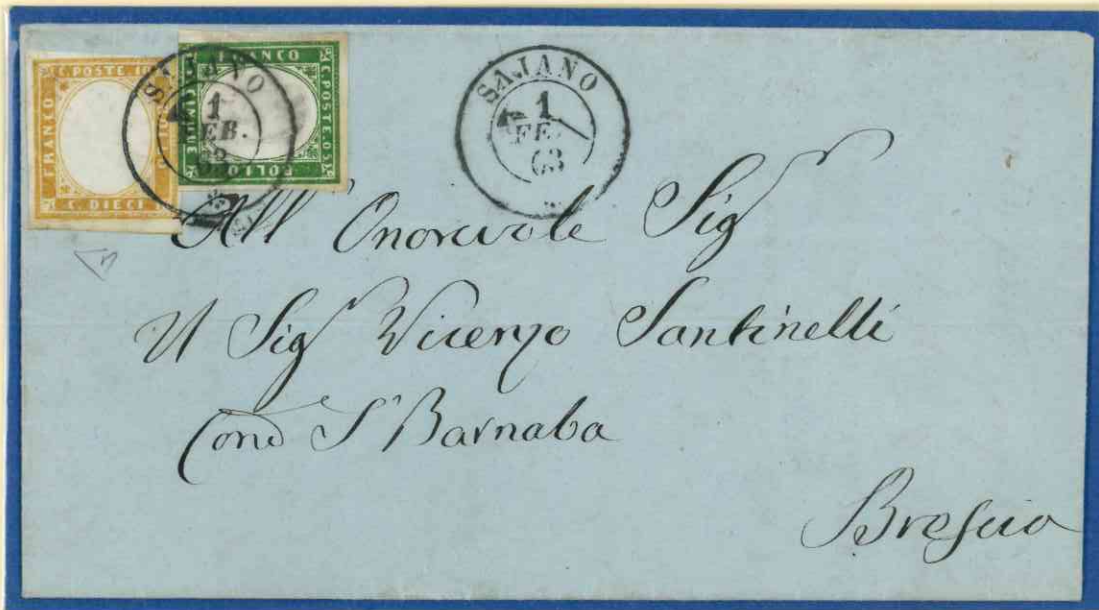 C. POSTE 10
FRANCO
C. DIECI
FRANCO
C. POSTE 05
BOLLO
SAJANO
1
FEB.
63
SAJANO
1
FE
63
All' Onorevole Sig
Il Sig Vicenzo Santinelli
Cond S Barnaba
Brescia